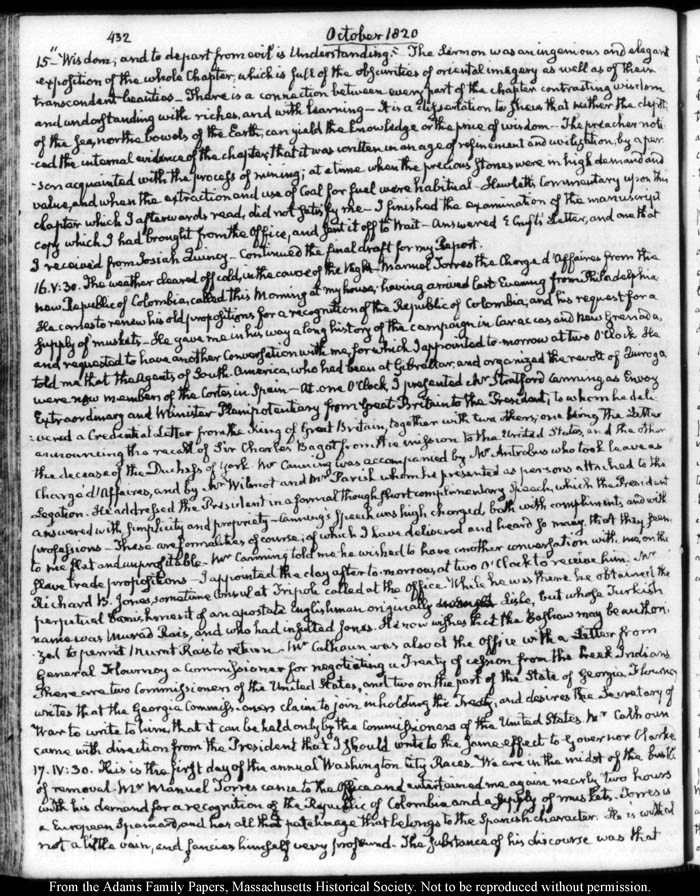 432
October 1820
15. "Wisdom; and to depart from evil is Understanding." The Sermon was an ingenious and elegant
exposition of the whole Chapter, which is full of the obscurities of oriental imagery as well as of their
transcendent beauties — There is a connection between every part of the chapter contrasting wisdom
and understanding with riches, and with learning — It is a dissertation to shew that neither the depths
of the Sea, nor the bowels of the Earth, can yield the knowledge or the price of wisdom — The preacher noti-
-ced the internal evidence of the chapter, that it was written in an age of refinement and civilization, by a per-
-son acquainted with the process of mining; at a time when the precious stones were in high demand and
value, and when the extraction and use of Coal for fuel were habitual — Hewlett's Commentary upon this
chapter which I afterwards read, did not satisfy me — I finished the examination of the manuscript
copy which I had brought from the Office, and sent it off to Wait — Answered E Letter, and one that
I received from Josiah Quincy — Continued the final draft for my Report.
16. V:30. The weather cleared off cold, in the course of the Night. Manuel Torres the Chargé d'Affaires from the
new Republic of Colombia, called this Morning at my house, having arrived last Evening from Philadelphia
He comes to renew his old propositions for a recognition of the Republic of Colombia, and his request for a
supply of muskets — He gave me in his way a long history of the campaign in Caraccas and New Grenada,
and requested to have another Conversation with me, for which I appointed to-morrow at two O'Clock. He
told me that the Agents of South America, who had been at Gibraltar, and organized the revolt of Quiroga
were now members of the Cortes in Spain — At one O'Clock, I presented Mr Stratford Canning as Envoy
Extraordinary and Minister Plenipotentiary from Great Britain to the President; to whom he deli-
-vered a Credential Letter from the King of Great Britain, together with two others; one being the Letter
announcing the recall of Sir Charles Bagot from the mission to the United States, and the other
the decease of the Duchess of York. Mr Canning was accompanied by Mr Antrobus who took leave as
Chargé d'Affaires, and by Mr Wilmot and Mr Parish whom he presented as persons attached to the
Legation. He addressed the President in a formal though short complimentary speech, which the President
answered with simplicity and propriety — Canning's speech was high charged, both with compliments and with
professions — These are formalities of course; of which I have delivered and heard so many, that they seem
to me flat and unprofitable — Mr Canning told me he wished to have another conversation with me, on the
slave trade propositions — I appointed the day after to-morrow, at two O'Clock to receive him. Mr
Richard B. Jones, sometime Consul at Tripoli called at the Office. While he was there he obtained the
perpetual banishment of an apostate Englishman originally Lisle, but whose Turkish
name was Murad Rais, and who had insulted Jones. He now wishes that the Bashaw may be authori-
zed to permit Murat Rais to return — Mr Calhoun was also at the office with a Letter from
General Flournoy a Commissioner for negotiating a Treaty of cession from the Creek Indians
There are two Commissioners of the United States, and two on the part of the State of Georgia. Flournoy
writes that the Georgia Commissioners claim to join in holding the Treaty, and desires the Secretary of
War to write to him, that it can be held only by the Commissioners of the United States. Mr Calhoun
came with direction from the President that I should write to the same effect to Governor Clarke.
17. IV:30. This is the first day of the annual Washington City Races. We are in the midst of the bustle
of removal. Mr Manuel Torres came to the Office and entertained me again nearly two hours
with his demand for a recognition of the Republic of Colombia and a supply of muskets. Torres is
a European Spaniard, and has all that that belongs to the Spanish character. He is withal
not a little vain, and fancies himself very profound. The substance of his discourse was that
From the Adams Family Papers, Massachusetts Historical Society. Not to be reproduced without permission.